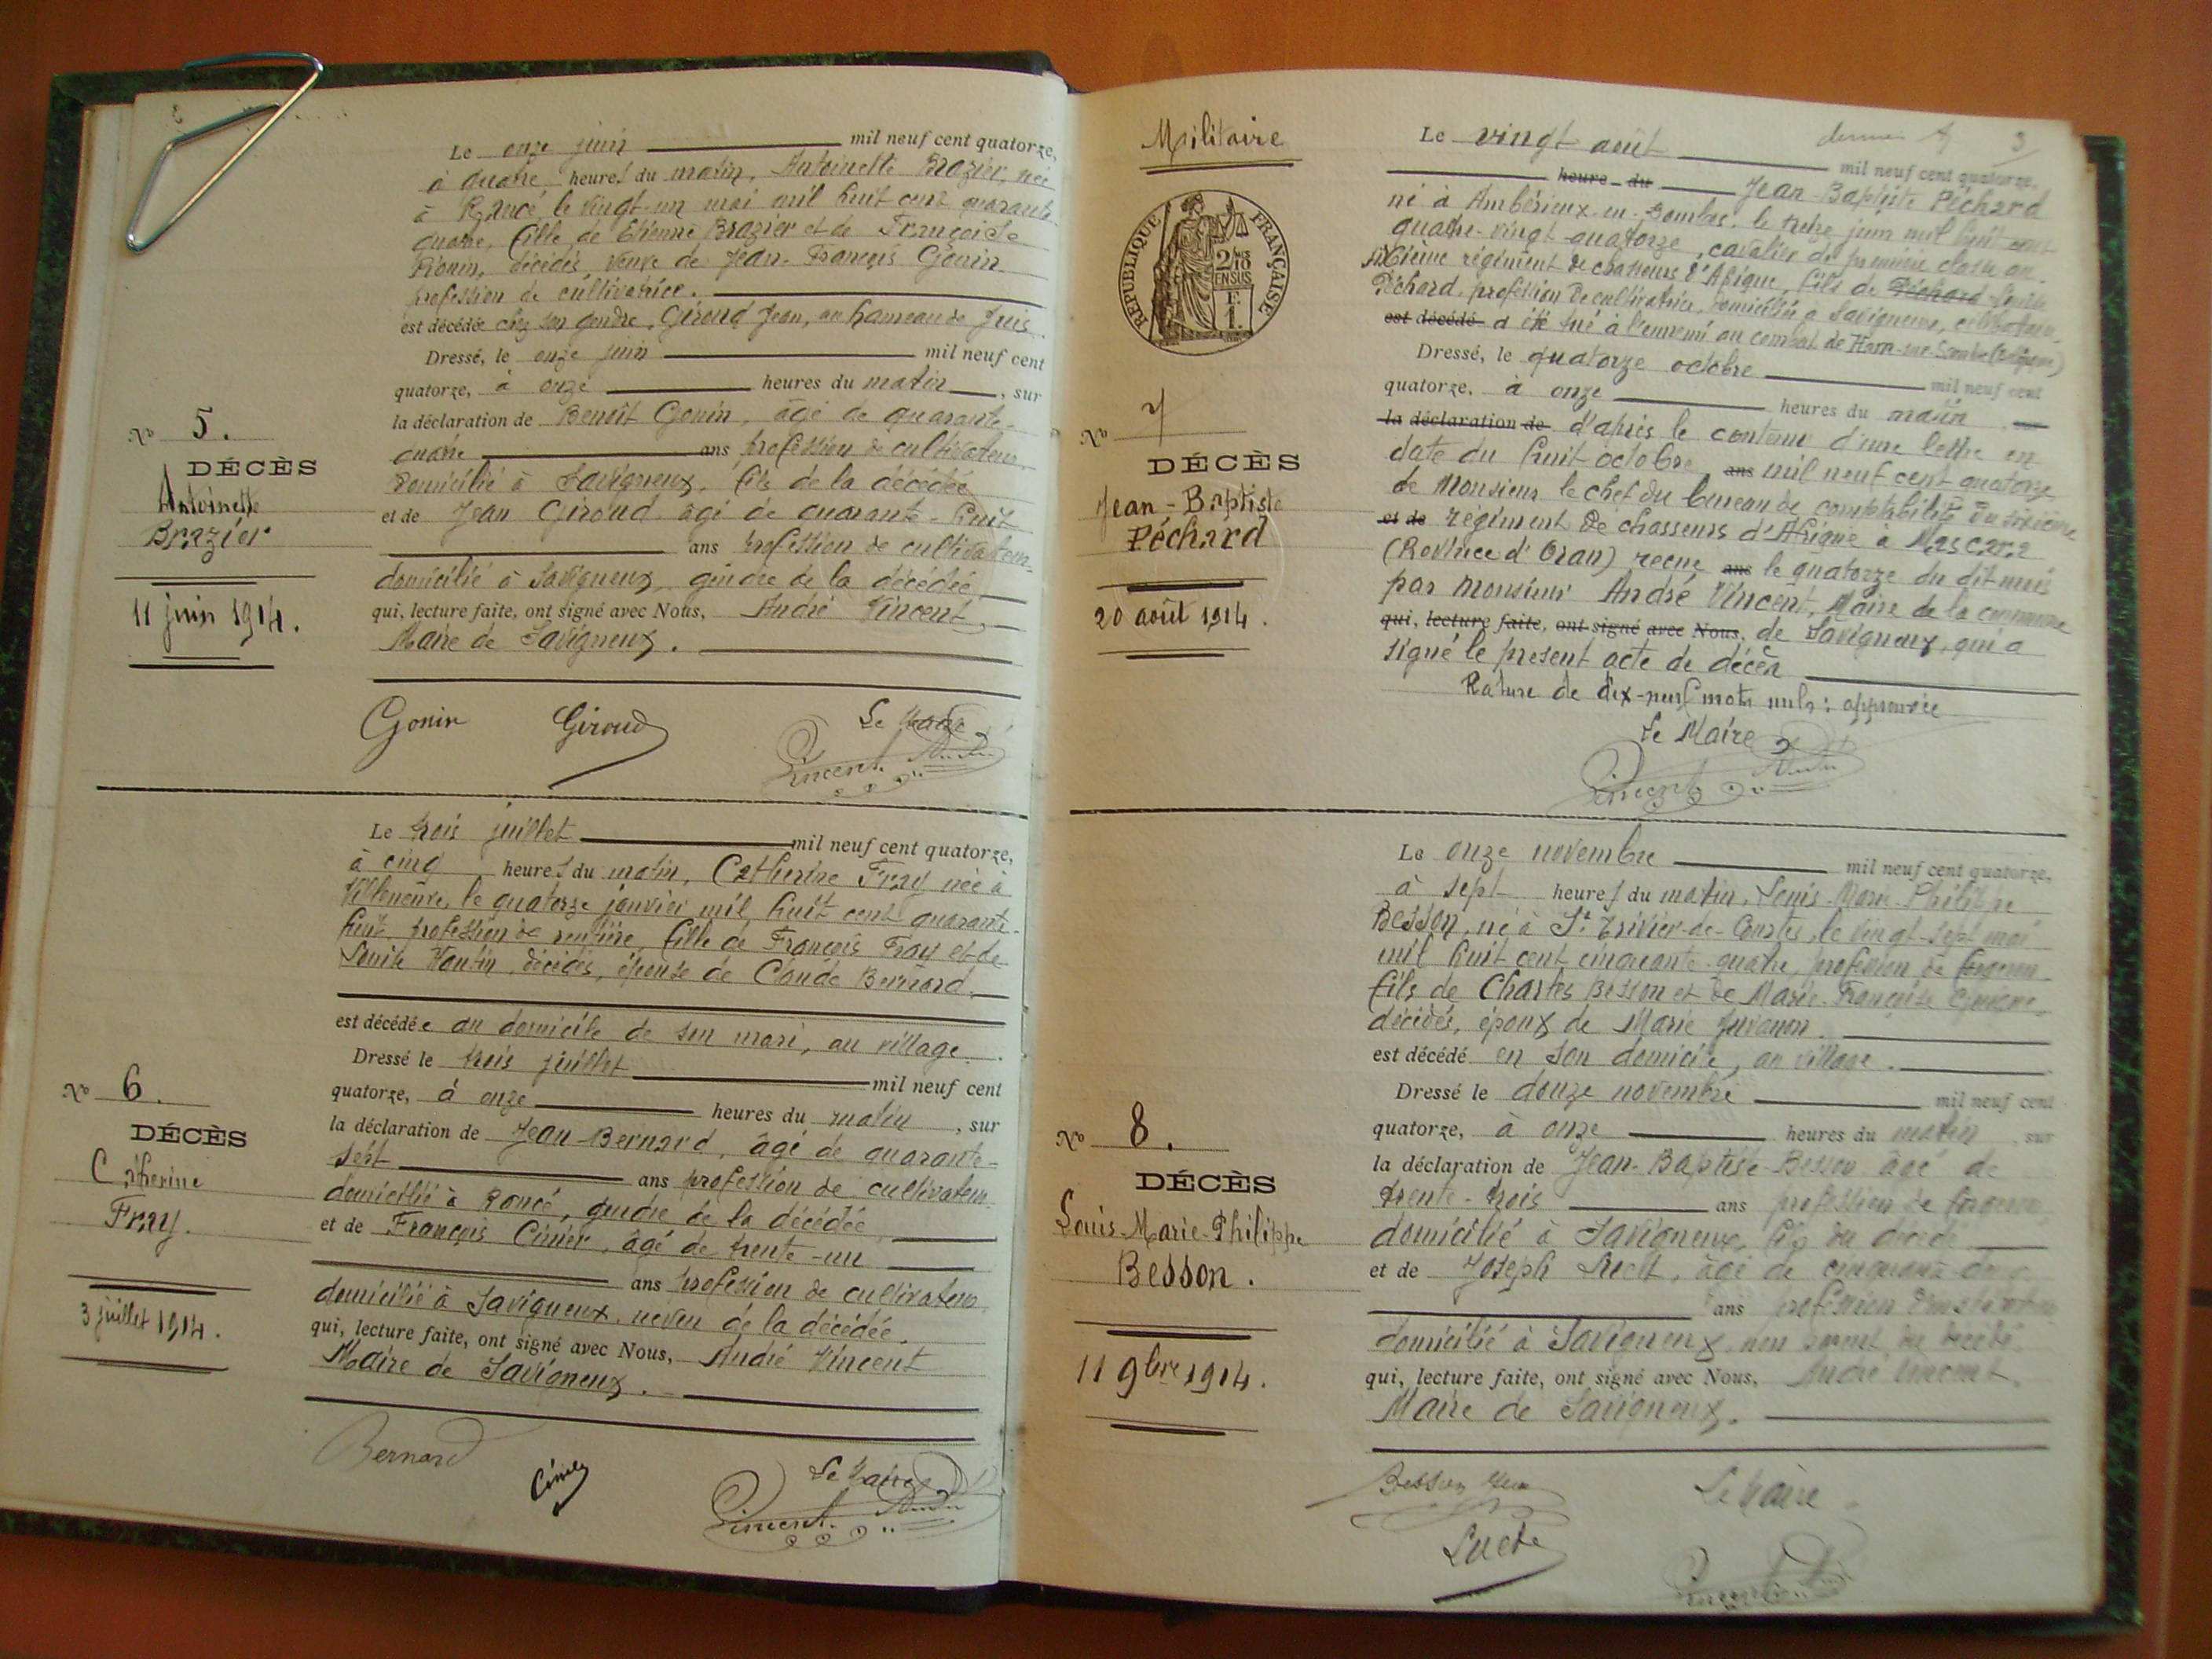 Le onze juin mil neuf cent quatorze,
à quatre heures du matin, Antoinette Brazier, née
à Rancé, le vingt-un mai mil huit cent quarante-
quatre, fille de Etienne Brazier et de Françoise
décédés, veuve de Jean-François Gonin
profession de cultivatrice.
est décédée chez son gendre, Giroud Jean, au hameau de Juis
Dressé, le onze juin mil neuf cent
quatorze, à onze heures du matin, sur
la déclaration de Benoît Gonin, âgé de quarante-
quatre ans profession de cultivateur
domicilié à Savigneux, fils de la décédée
et de Jean Giroud âgé de quarante-huit
ans profession de cultivateur
domicilié à Savigneux, gendre de la décédée
qui, lecture faite, ont signé avec Nous, André Vincent,
Maire de Savigneux.
Gonin Giroud Le Maire
Vincent André
No 5.
DÉCÈS
Antoinette
Brazier
11 juin 1914.
Le trois juillet mil neuf cent quatorze,
à cinq heures du matin, Catherine Fray née à
Villeneuve, le quatorze janvier mil huit cent quarante-
huit, profession de rentière, fille de François Fray et de
décédés, épouse de Claude Bernard.
est décédée au domicile de son mari, au village.
Dressé le trois juillet mil neuf cent
quatorze, à onze heures du matin, sur
la déclaration de Jean-Bernard, âgé de quarante-
sept ans profession de cultivateur
domicilié à Rancé, gendre de la décédée
et de François Cimier, âgé de trente-un
ans profession de cultivateur
domicilié à Savigneux, neveu de la décédée.
qui, lecture faite, ont signé avec Nous, André Vincent
Maire de Savigneux.
Bernard Le Maire
Vincent André
No 6.
DÉCÈS
Catherine
Fray.
3 juillet 1914.
Militaire
RÉPUBLIQUE FRANÇAISE
No 7
DÉCÈS
Jean-Baptiste
Péchard
20 août 1914.
3
Le vingt août mil neuf cent quatorze,
heure du Jean-Baptiste Péchard
né à Ambérieux-en-Dombes, le treize juin mil huit cent
quatre-vingt-quatorze, cavalier de première classe au
sixième régiment de chasseurs d'Afrique, fils de Péchard
Péchard, profession de cultivatrice, domiciliée à Savigneux, célibataire
est décédé a été tué à l'ennemi au combat de Ham-sur-Sambre (Belgique)
Dressé, le quatorze octobre mil neuf cent
quatorze, à onze heures du matin
la déclaration de d'après le contenu d'une lettre en
date du huit octobre ans mil neuf cent quatorze
de Monsieur le chef du bureau de comptabilité du sixième
et de régiment de chasseurs d'Afrique à Mascara
(Province d'Oran) reçue ans le quatorze du dit mois
par Monsieur André Vincent, Maire de la commune
qui, lecture faite, ont signé avec Nous, de Savigneux, qui a
signé le présent acte de décès
Rature de dix-neuf mots nuls : approuvée
Le Maire
Vincent André
Le onze novembre mil neuf cent quatorze,
à sept heures du matin, Louis-Marie-Philippe
Besson, né à St Trivier-de-Courtes, le vingt-sept mai
mil huit cent cinquante-quatre, profession de forgeron
fils de Charles Besson et de Marie-Françoise
décédés, époux de Marie Juvanon.
est décédé en son domicile, au village.
Dressé le douze novembre mil neuf cent
quatorze, à onze heures du matin sur
la déclaration de Jean-Baptiste Besson âgé de
trente-trois ans profession de forgeron
domicilié à Savigneux, fils du décédé
et de Joseph âgé de cinquante
ans profession
domicilié à Savigneux, non parent du décédé.
qui, lecture faite, ont signé avec Nous, André Vincent.
Maire de Savigneux.
Besson Le Maire
No 8.
DÉCÈS
Louis-Marie-Philippe
Besson.
11 9bre 1914.